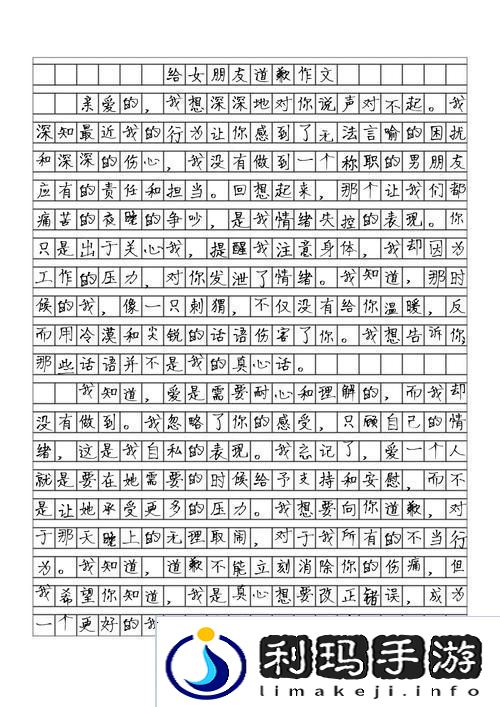 给女朋友道歉作文
亲爱的，我想深深地对你说声对不起。我
深知最近我的行为让你感到了无法言喻的困扰
和深深的伤心，我没有做到一个称职的男朋友
应有的责任和担当。回想起来，那个让我们都
痛苦的夜晚的争吵，是我情绪失控的表现。你
只是出于关心我，提醒我注意身体，我却因为
工作的压力，对你发泄了情绪。我知道，那时
候的我，像一只刺猬，不仅没有给你温暖，反
而用冷漠和尖锐的话语伤害了你。我想告诉你，
那些话语并不是我的真心话。
我知道，爱是需要耐心和理解的，而我却
没有做到。我忽略了你的感受，只顾自己的情
绪，这是我自私的表现。我忘记了，爱一个人
就是要在她需要的时候给予支持和安慰，而不
是让她承受更多的压力。我想要向你道歉，对
于那天晚上的无理取闹，对于我所有的不当行
为。我知道，道歉不能立刻消除你的伤痛，但
我希望你知道，我是真心想要改正错误，成为
一个更好的我
利玛手游
limakeji.info